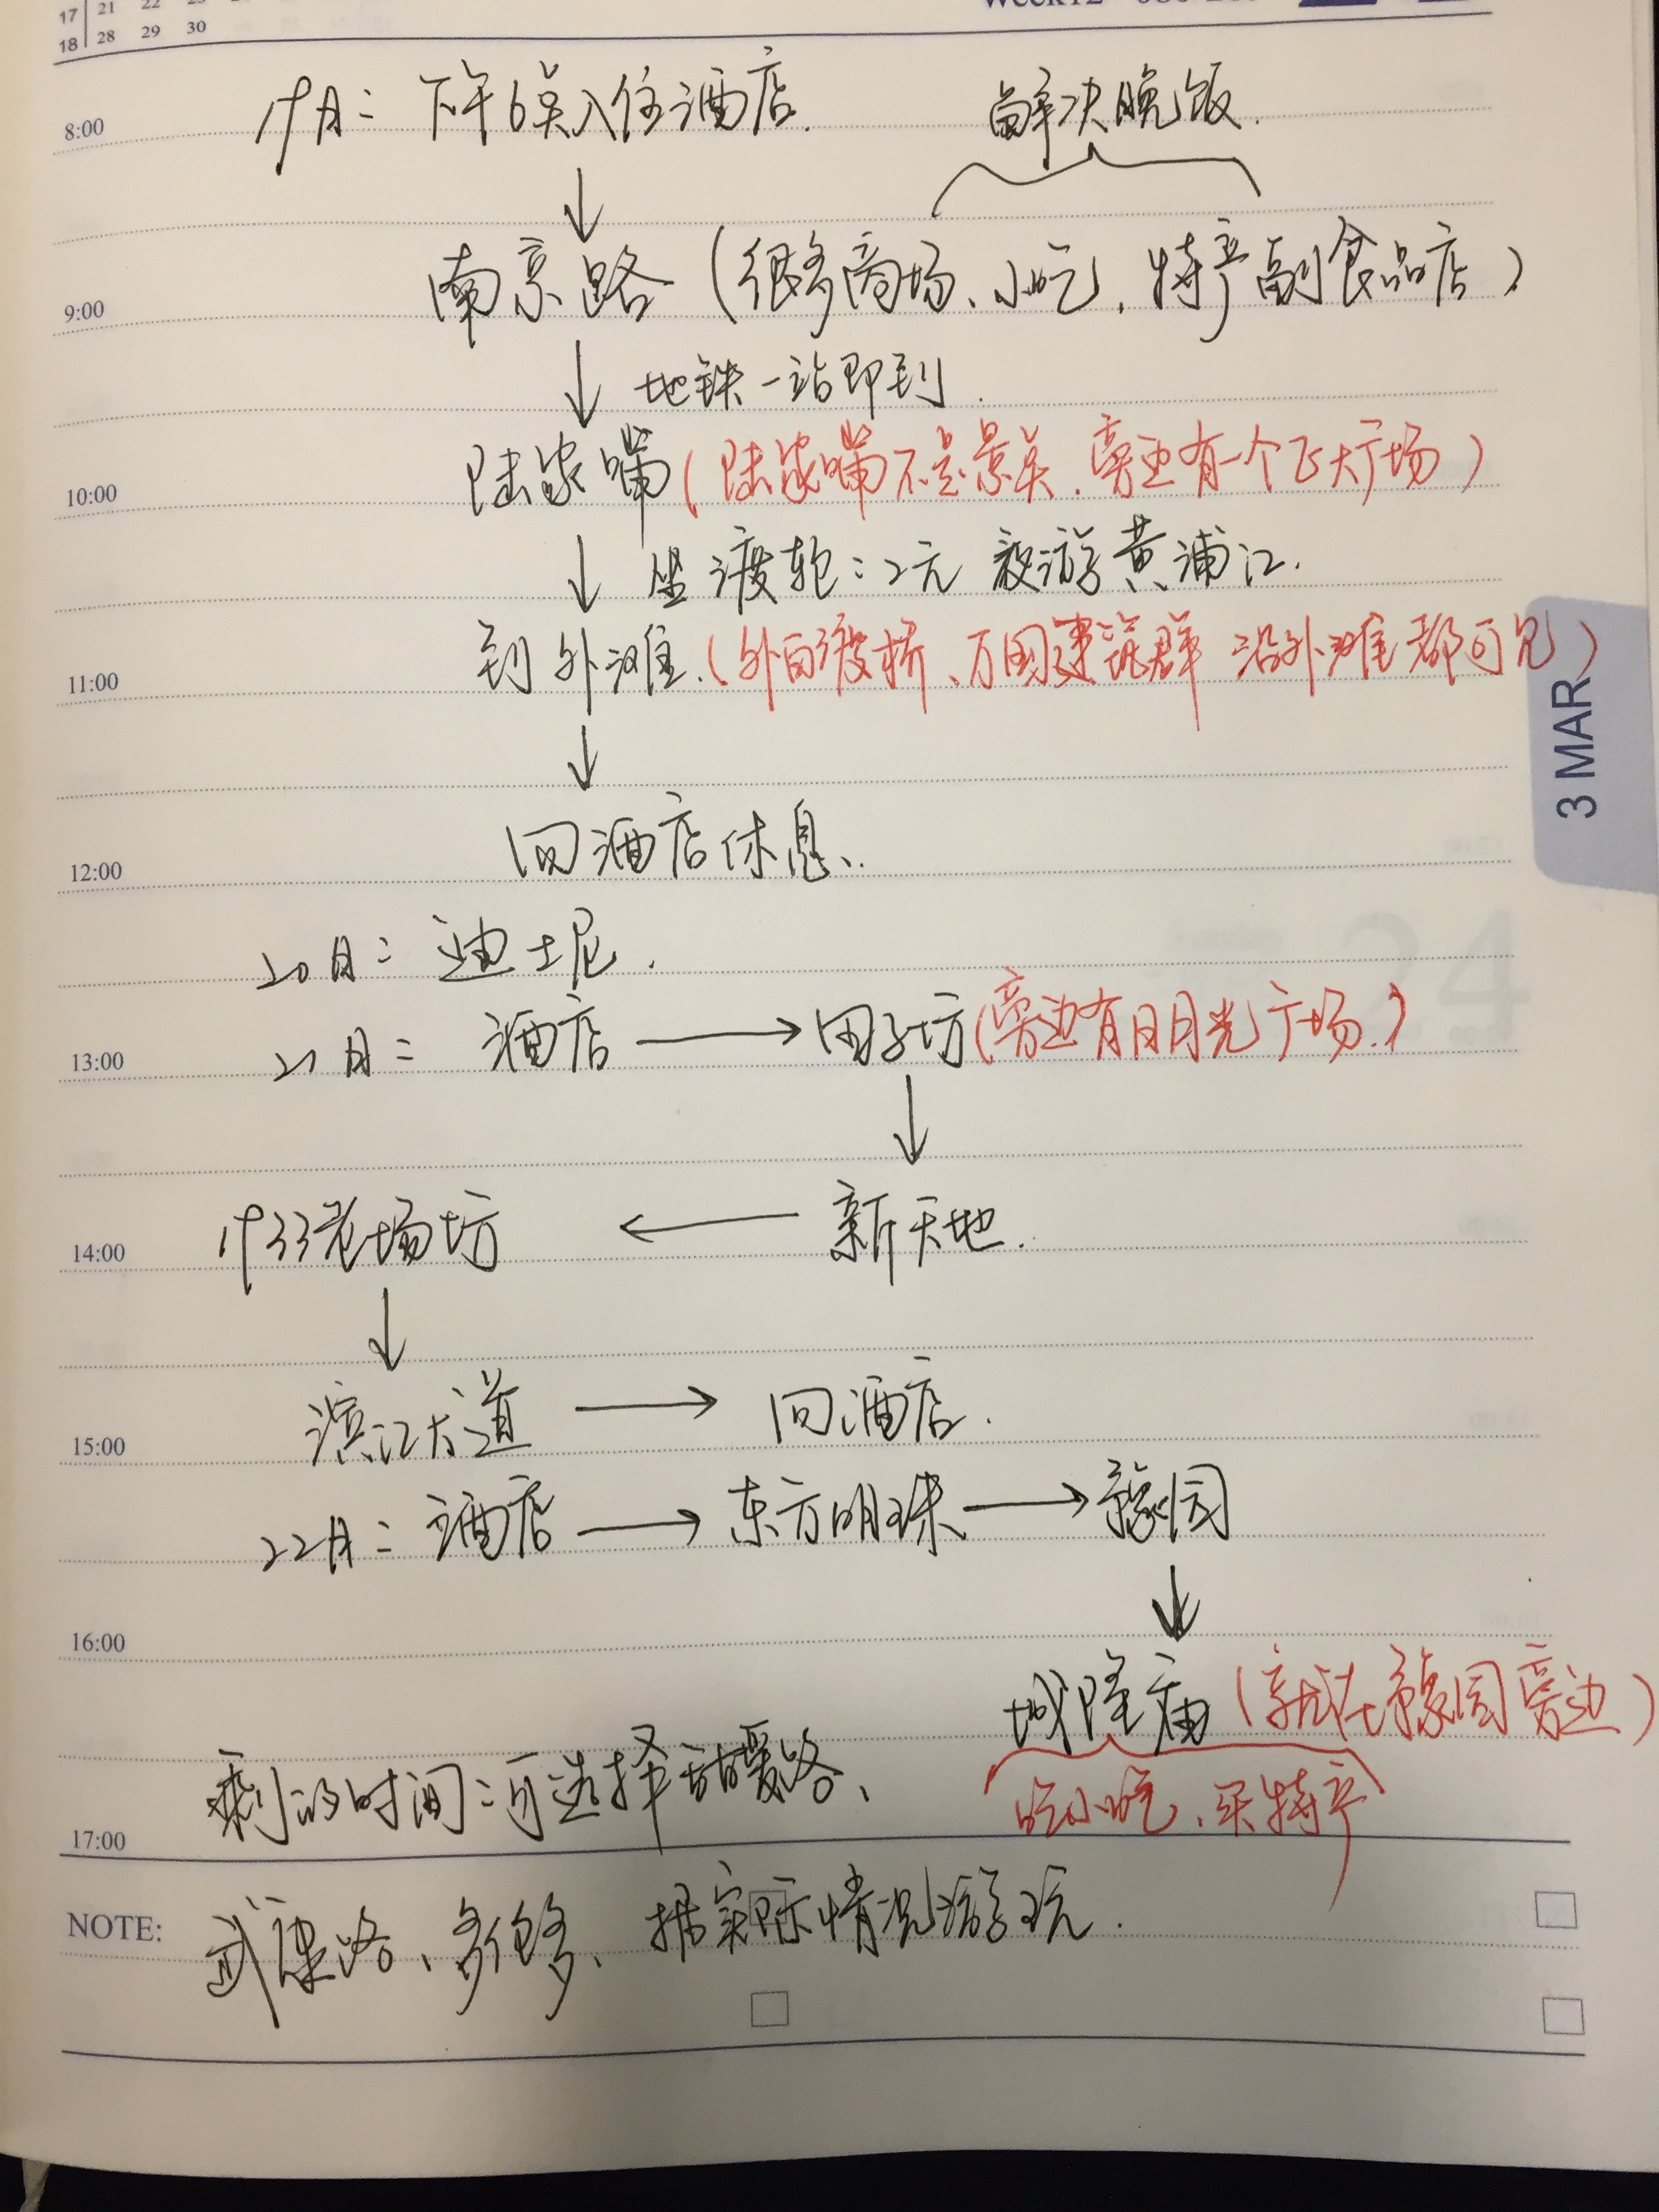 17 21 22 23
18 28 29 30
19日: 下午6点入住酒店. 解决晚饭.
8:00
↓
南京路 (很多商场、小吃, 特产副食品店)
9:00
↓ 地铁一站即到.
陆家嘴 (陆家嘴不是景点. 旁边有一个正大广场)
10:00
↓ 坐渡轮:2元 夜游黄浦江.
到外滩. (外白渡桥、万国建筑群 沿外滩都可见)
11:00
3 MAR
↓
回酒店休息.
12:00
20日: 迪士尼.
21日: 酒店 → 田子坊 (旁边有日月光广场.)
13:00
↓
1933老场坊 ← 新天地.
14:00
↓
滨江大道 → 回酒店.
15:00
22日: 酒店 → 东方明珠 → 豫园
↓
16:00
城隍庙 (就在豫园旁边)
剩的时间:可选择甜爱路、
吃小吃、买特产
17:00
NOTE: 武康路、多伦多、据实际情况游玩.